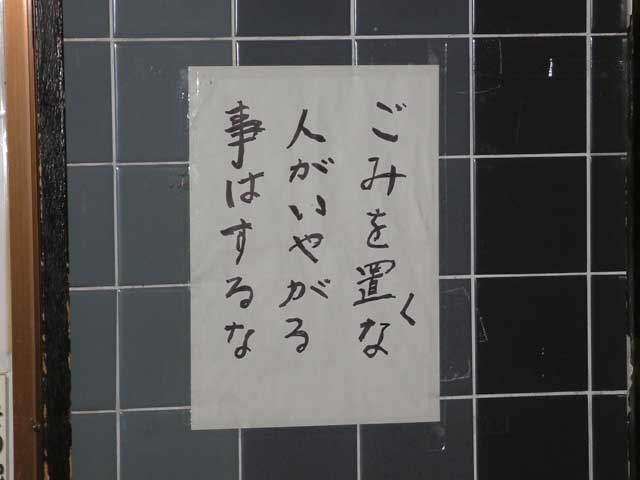 ごみを置くな
人がいやがる
事はするな